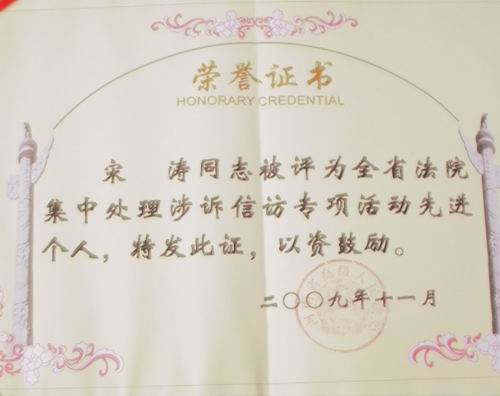 荣誉证书
HONORARY CREDENTIAL
宋 涛同志被评为全省法院
集中处理涉诉信访专项活动先进
个人，特发此证，以资鼓励。
二〇〇九年十一月